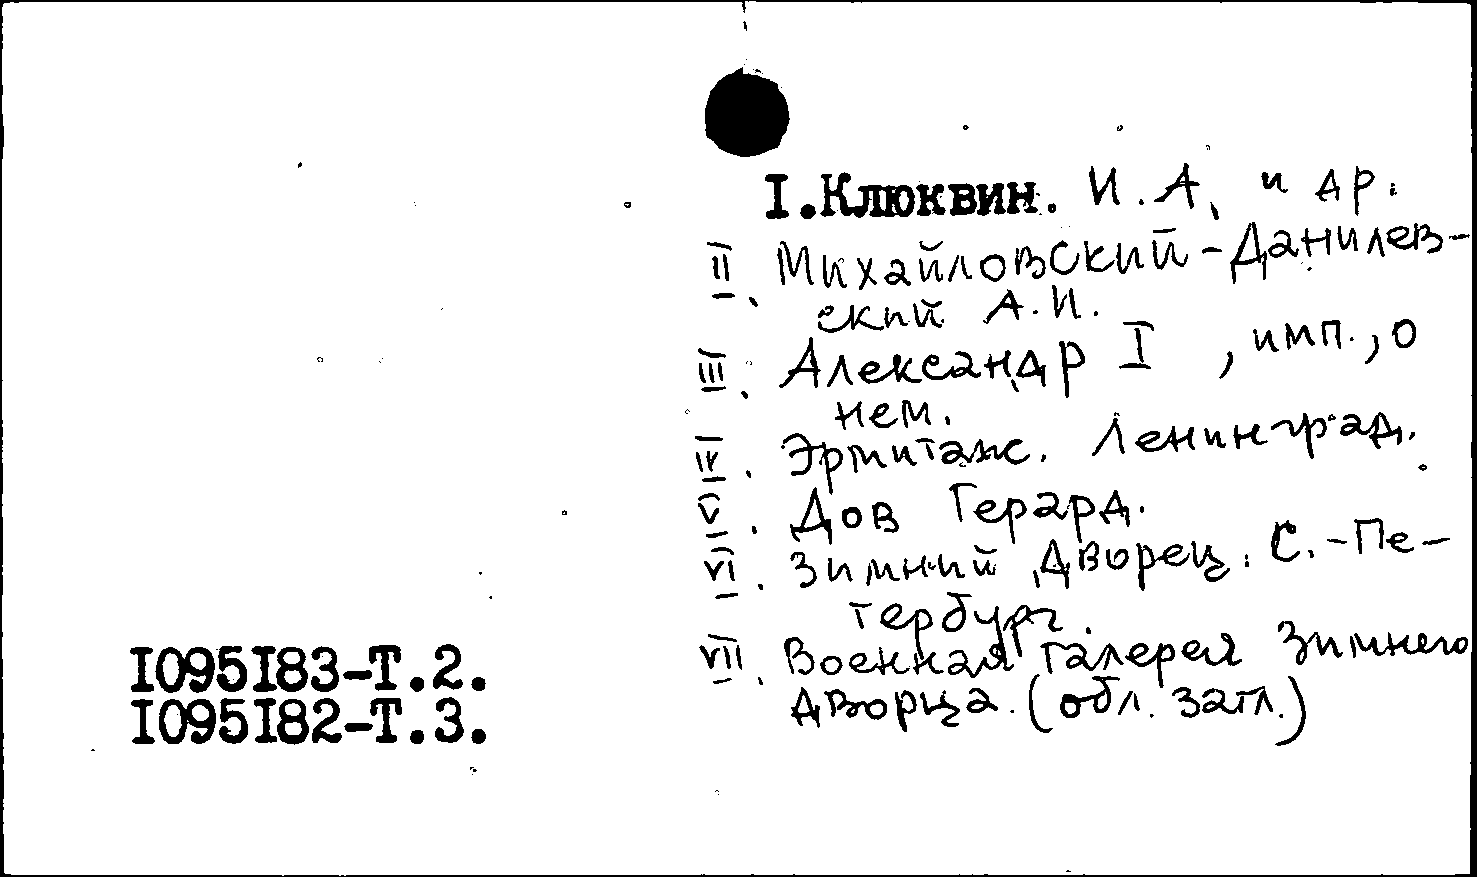 I.Клюквин. И.А. и др.
II. Михайловский-Данилев-
ский А.И.
III. Александр I, имп., о
нем.
IV. Эрмитаж. Ленинград.
V. Дов Герард.
VI. Зимний дворец. С.-Пе-
тербург.
VII. Военная галерея Зимнего
дворца. (обл. загл.)
I095I83-Т.2.
I095I82-Т.3.